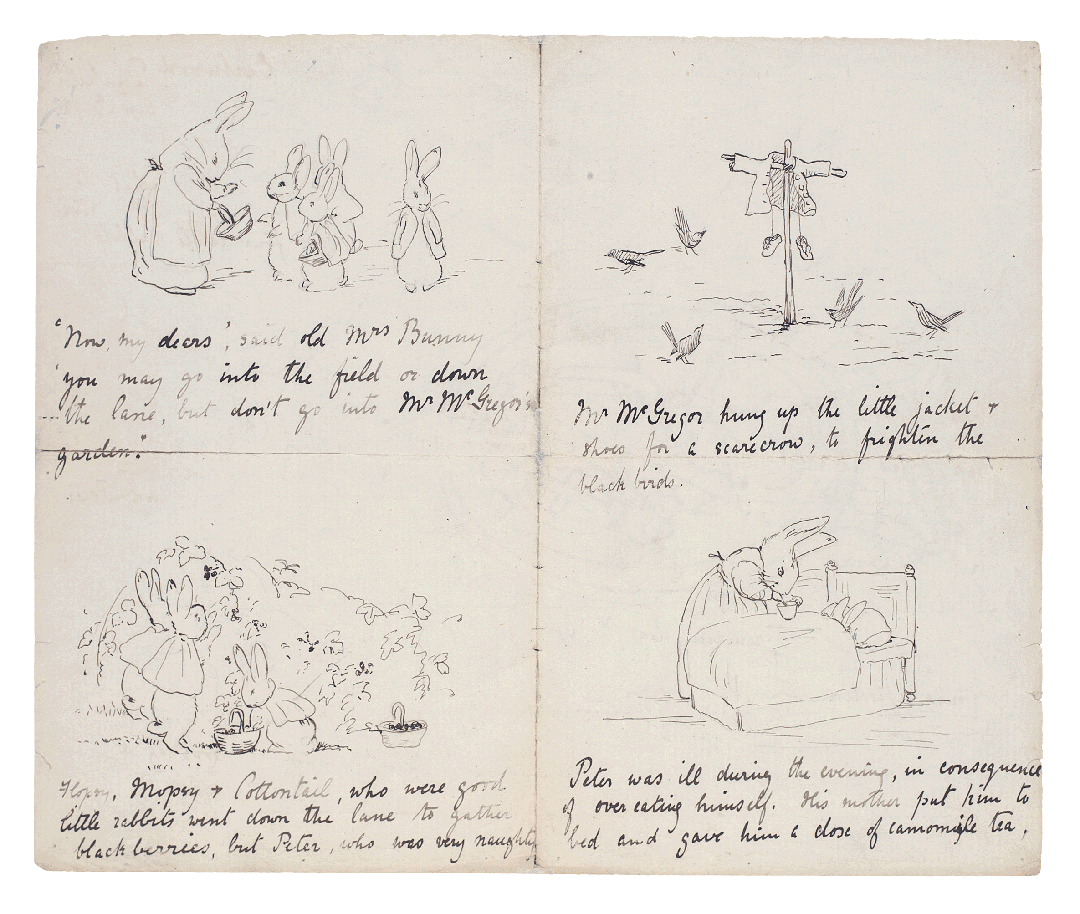 "Now, my dears", said old Mrs Bunny
"you may go into the field or down
the lane, but don't go into Mr McGregor's
garden."
Flopsy, Mopsy + Cottontail, who were good
little rabbits went down the lane to gather
blackberries, but Peter, who was very naughty
Mr McGregor hung up the little jacket +
shoes for a scarecrow, to frighten the
black birds.
Peter was ill during the evening, in consequence
of over eating himself. His mother put him to
bed and gave him a dose of camomile tea,